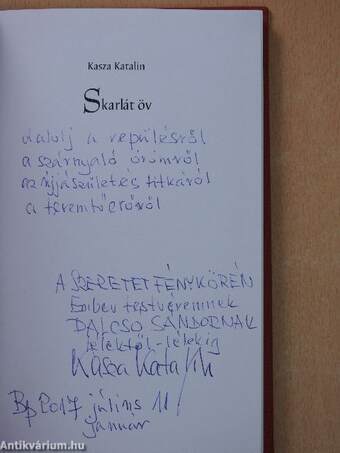 Kasza Katalin
Skarlát öv
dalolj a repülésről
a szárnyaló örömről
az újjászületés titkáról
a teremtőerőről
A SZERETET FÉNYKÖRÉN
Ember testvéremnek
DALCSO SÁNDORNAK
lélektől-lélekig
Kasza Katalin
Bp 2017 július 11
január
Antikvárium.hu